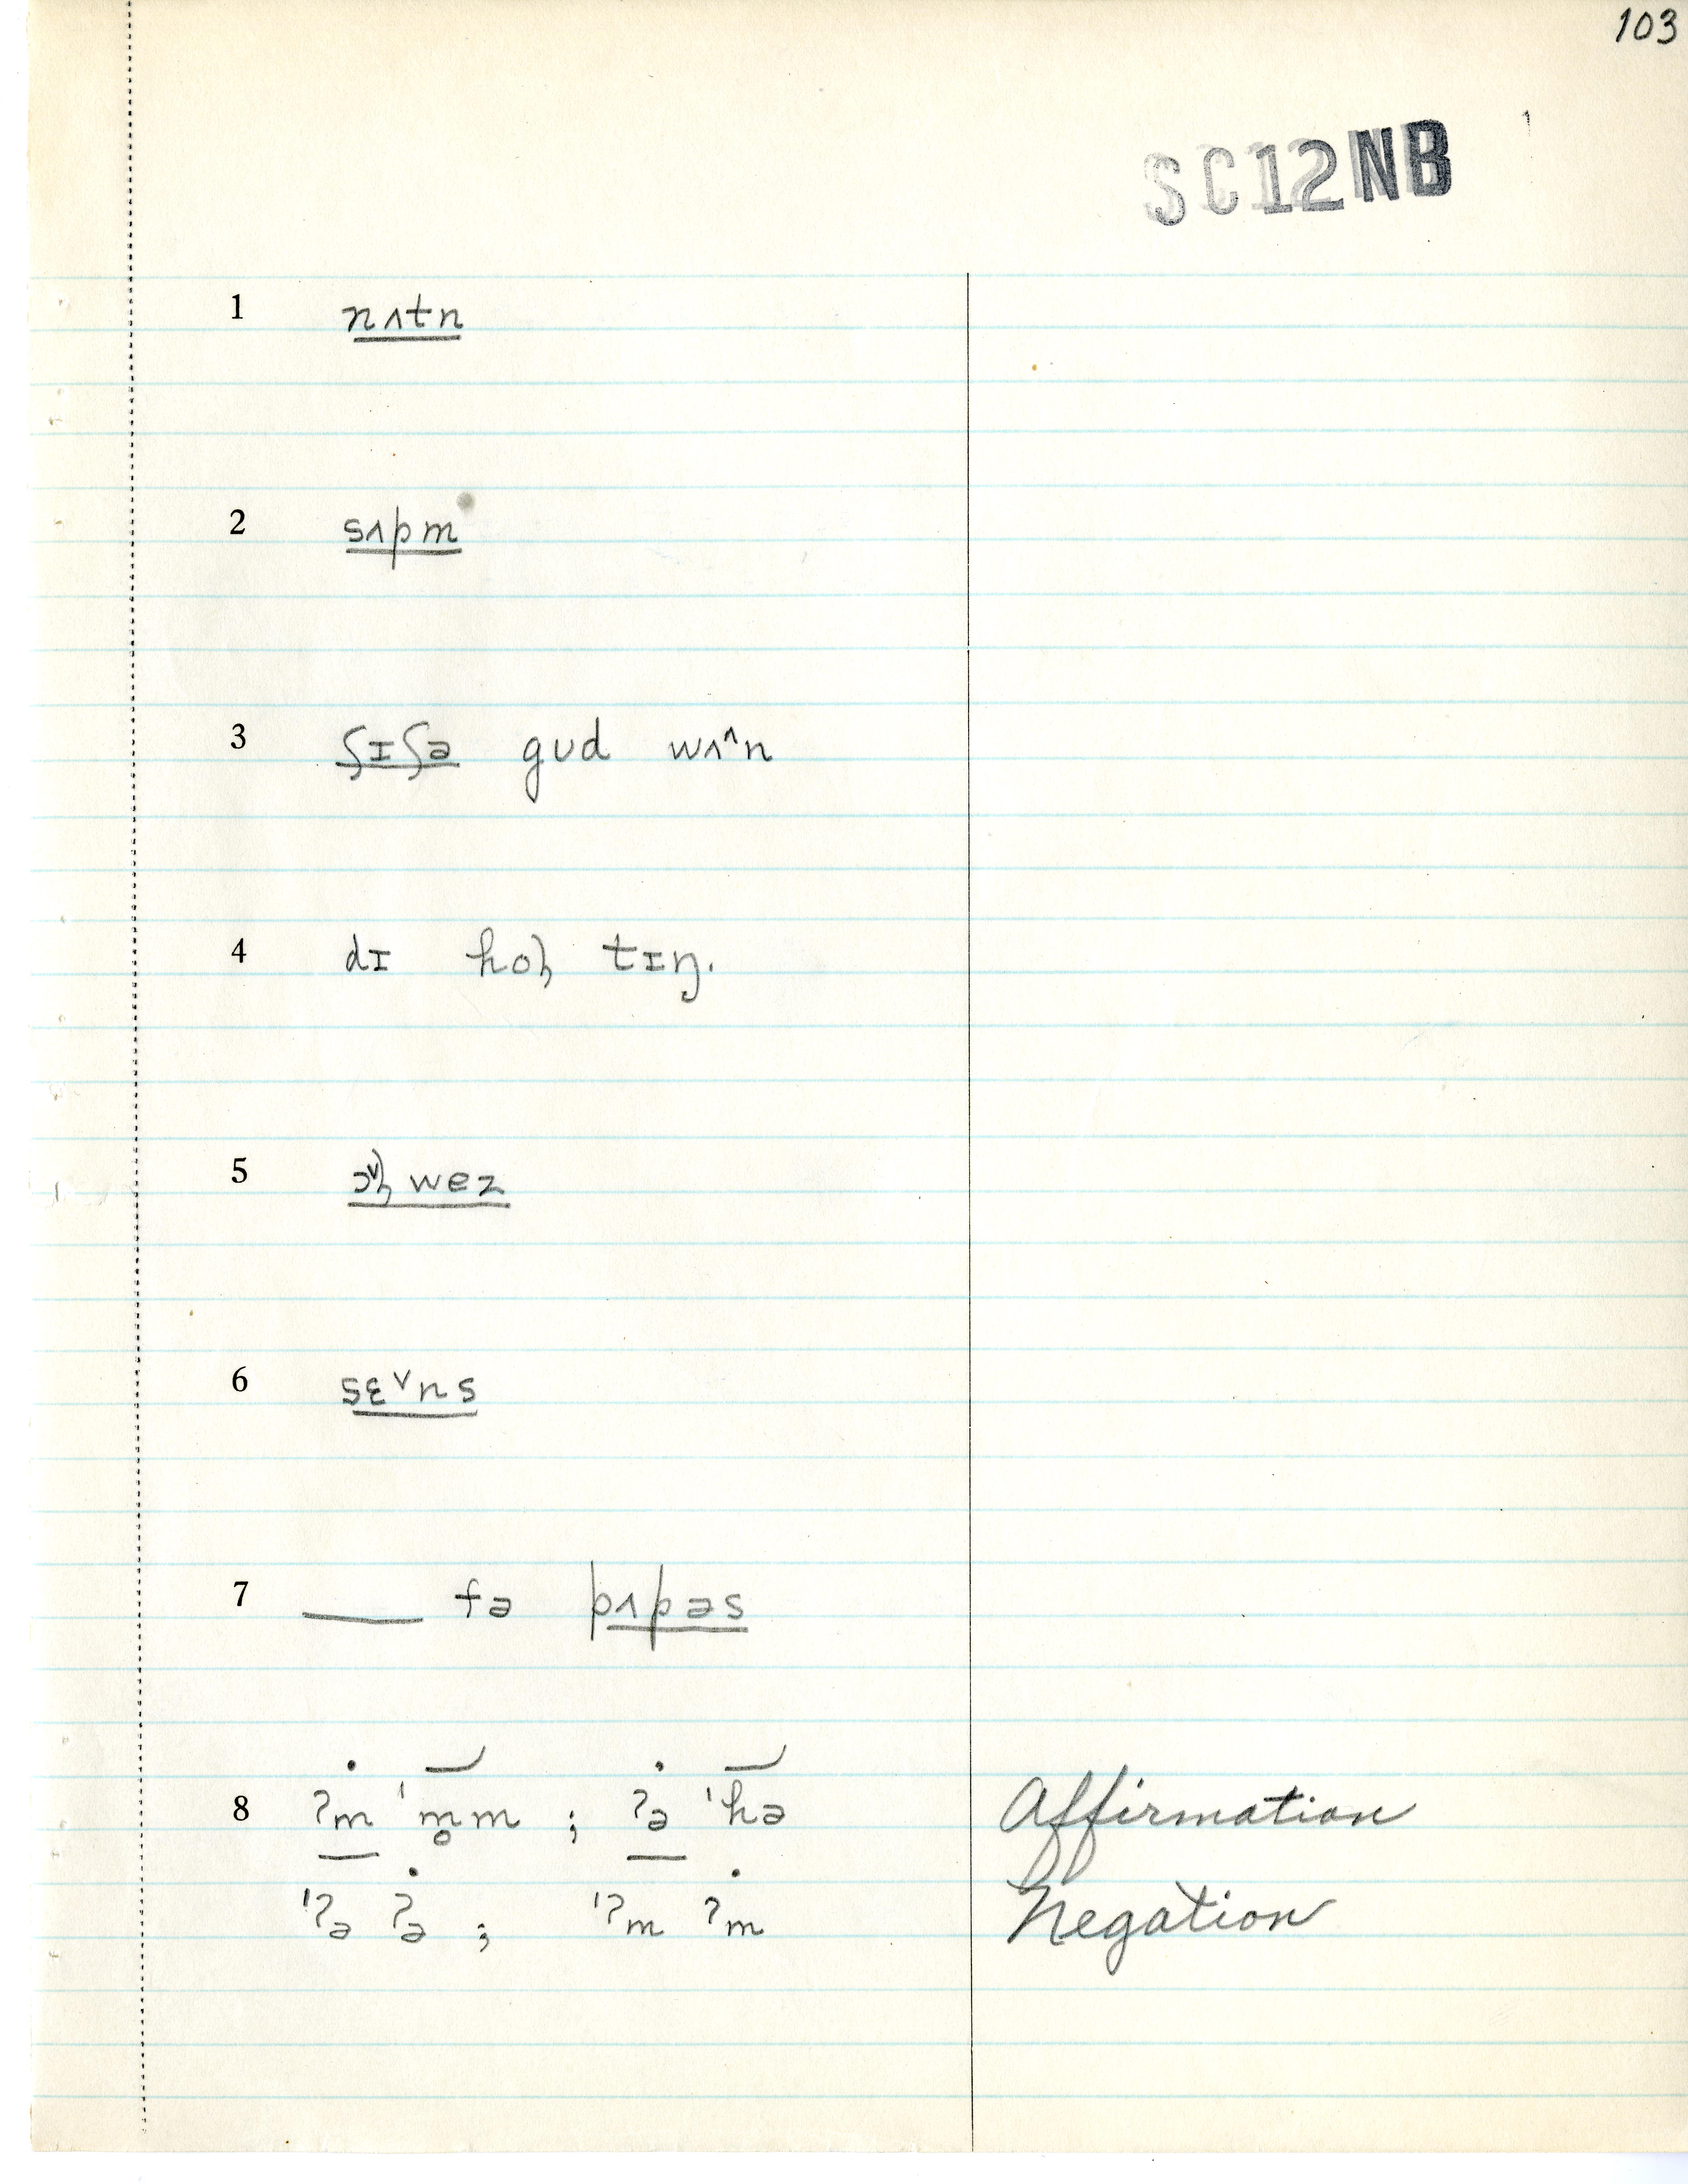 103
SC12NB
1 nʌtn
2 sʌpm
3 ʃɪʃə gud wʌ^n
4 dɪ hoɫ tɪŋ.
5 wez
6 sɛ˅ns
7 ___ fə pʌpəs
8 ʔm ˈm̥m ; ʔə ˈhə Affirmation
ˈʔə ʔə ; ˈʔm ʔm Negation